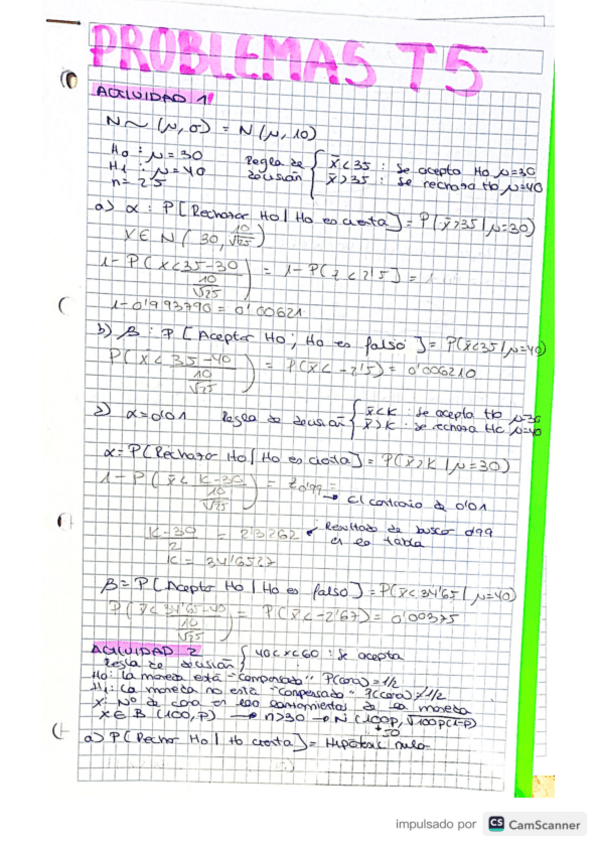 PROBLEMAS T5
ACTIVIDAD 1
N ~ (μ, σ) = N(μ, 10)
H0 : μ = 30
H1 : μ = 40
n = 25
Regla de decisión { x̄ < 35 : Se acepta H0 μ=30
x̄ > 35 : Se rechaza H0 μ=40
a) α : P[Rechazar H0 | H0 es cierta] = P(x̄ > 35 | μ = 30)
X ∈ N(30, 10/√25)
1 - P(x < 35-30 / 10/√25) = 1 - P(z < 2'5) =
1 - 0'993790 = 0'00621
b) β : P [Aceptar H0 ; H0 es falso] = P(x̄<35 | μ=40)
P(x̄ < 35-40 / 10/√25) = P(x̄ < -2'5) = 0'006210
2) α = 0'01 Regla de decisión { x̄ < K : Se acepta H0 μ=30
x̄ > K : se rechaza H0 μ=40
α = P[Rechazar H0 | H0 es cierta] = P(x̄ > K | μ = 30)
1 - P(x̄ < K-30 / 10/√25) = 0'99 → El contrario de 0'01
K-30 / 2 = 2'3262 Resultado de buscar 0'99 en la tabla
K = 34'6527
β = P[Aceptar H0 | H0 es falso] = P(x̄ < 34'65 | μ=40)
P(x̄ < 34'65-40 / 10/√25) = P(x̄ < -2'67) = 0'00375
ACTIVIDAD 2
Regla de decisión { 40<x<60 : Se acepta
H0: La moneda está "compensada" P(cara) = 1/2
H1: La moneda no está "compensada" P(cara) ≠ 1/2
X: Nº de cara en 100 lanzamientos de la moneda
X ∈ B (100, P) → n>30 → N (100p, √100p(1-p)
50
a) P[Rechazar H0 | H0 cierta] = Hipótesis nula
impulsado por CS CamScanner